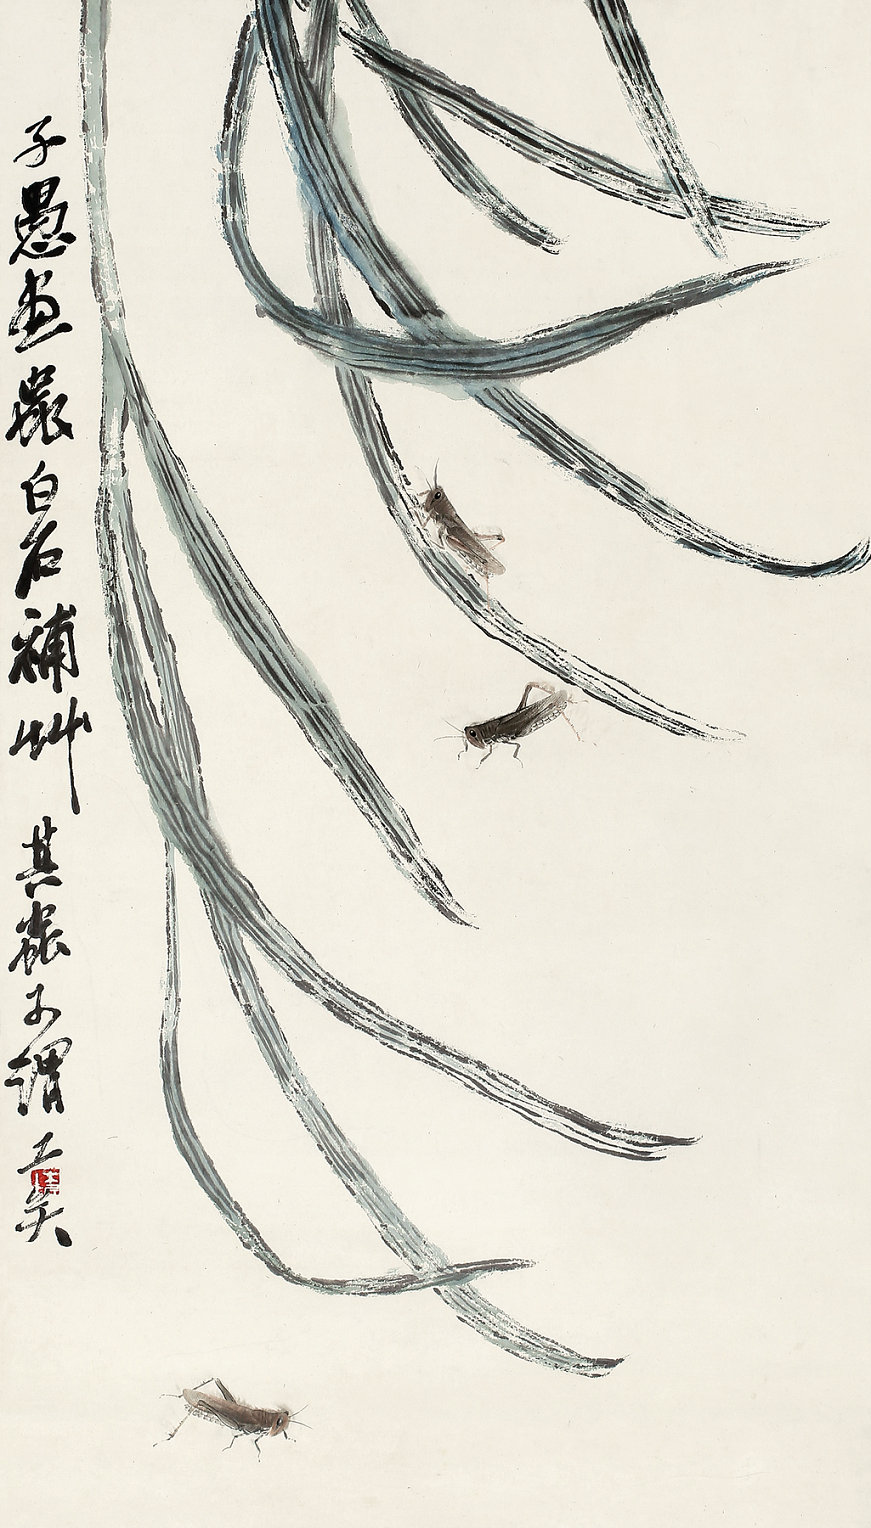 子愚畫蟲白石補艸其蟲可謂工矣